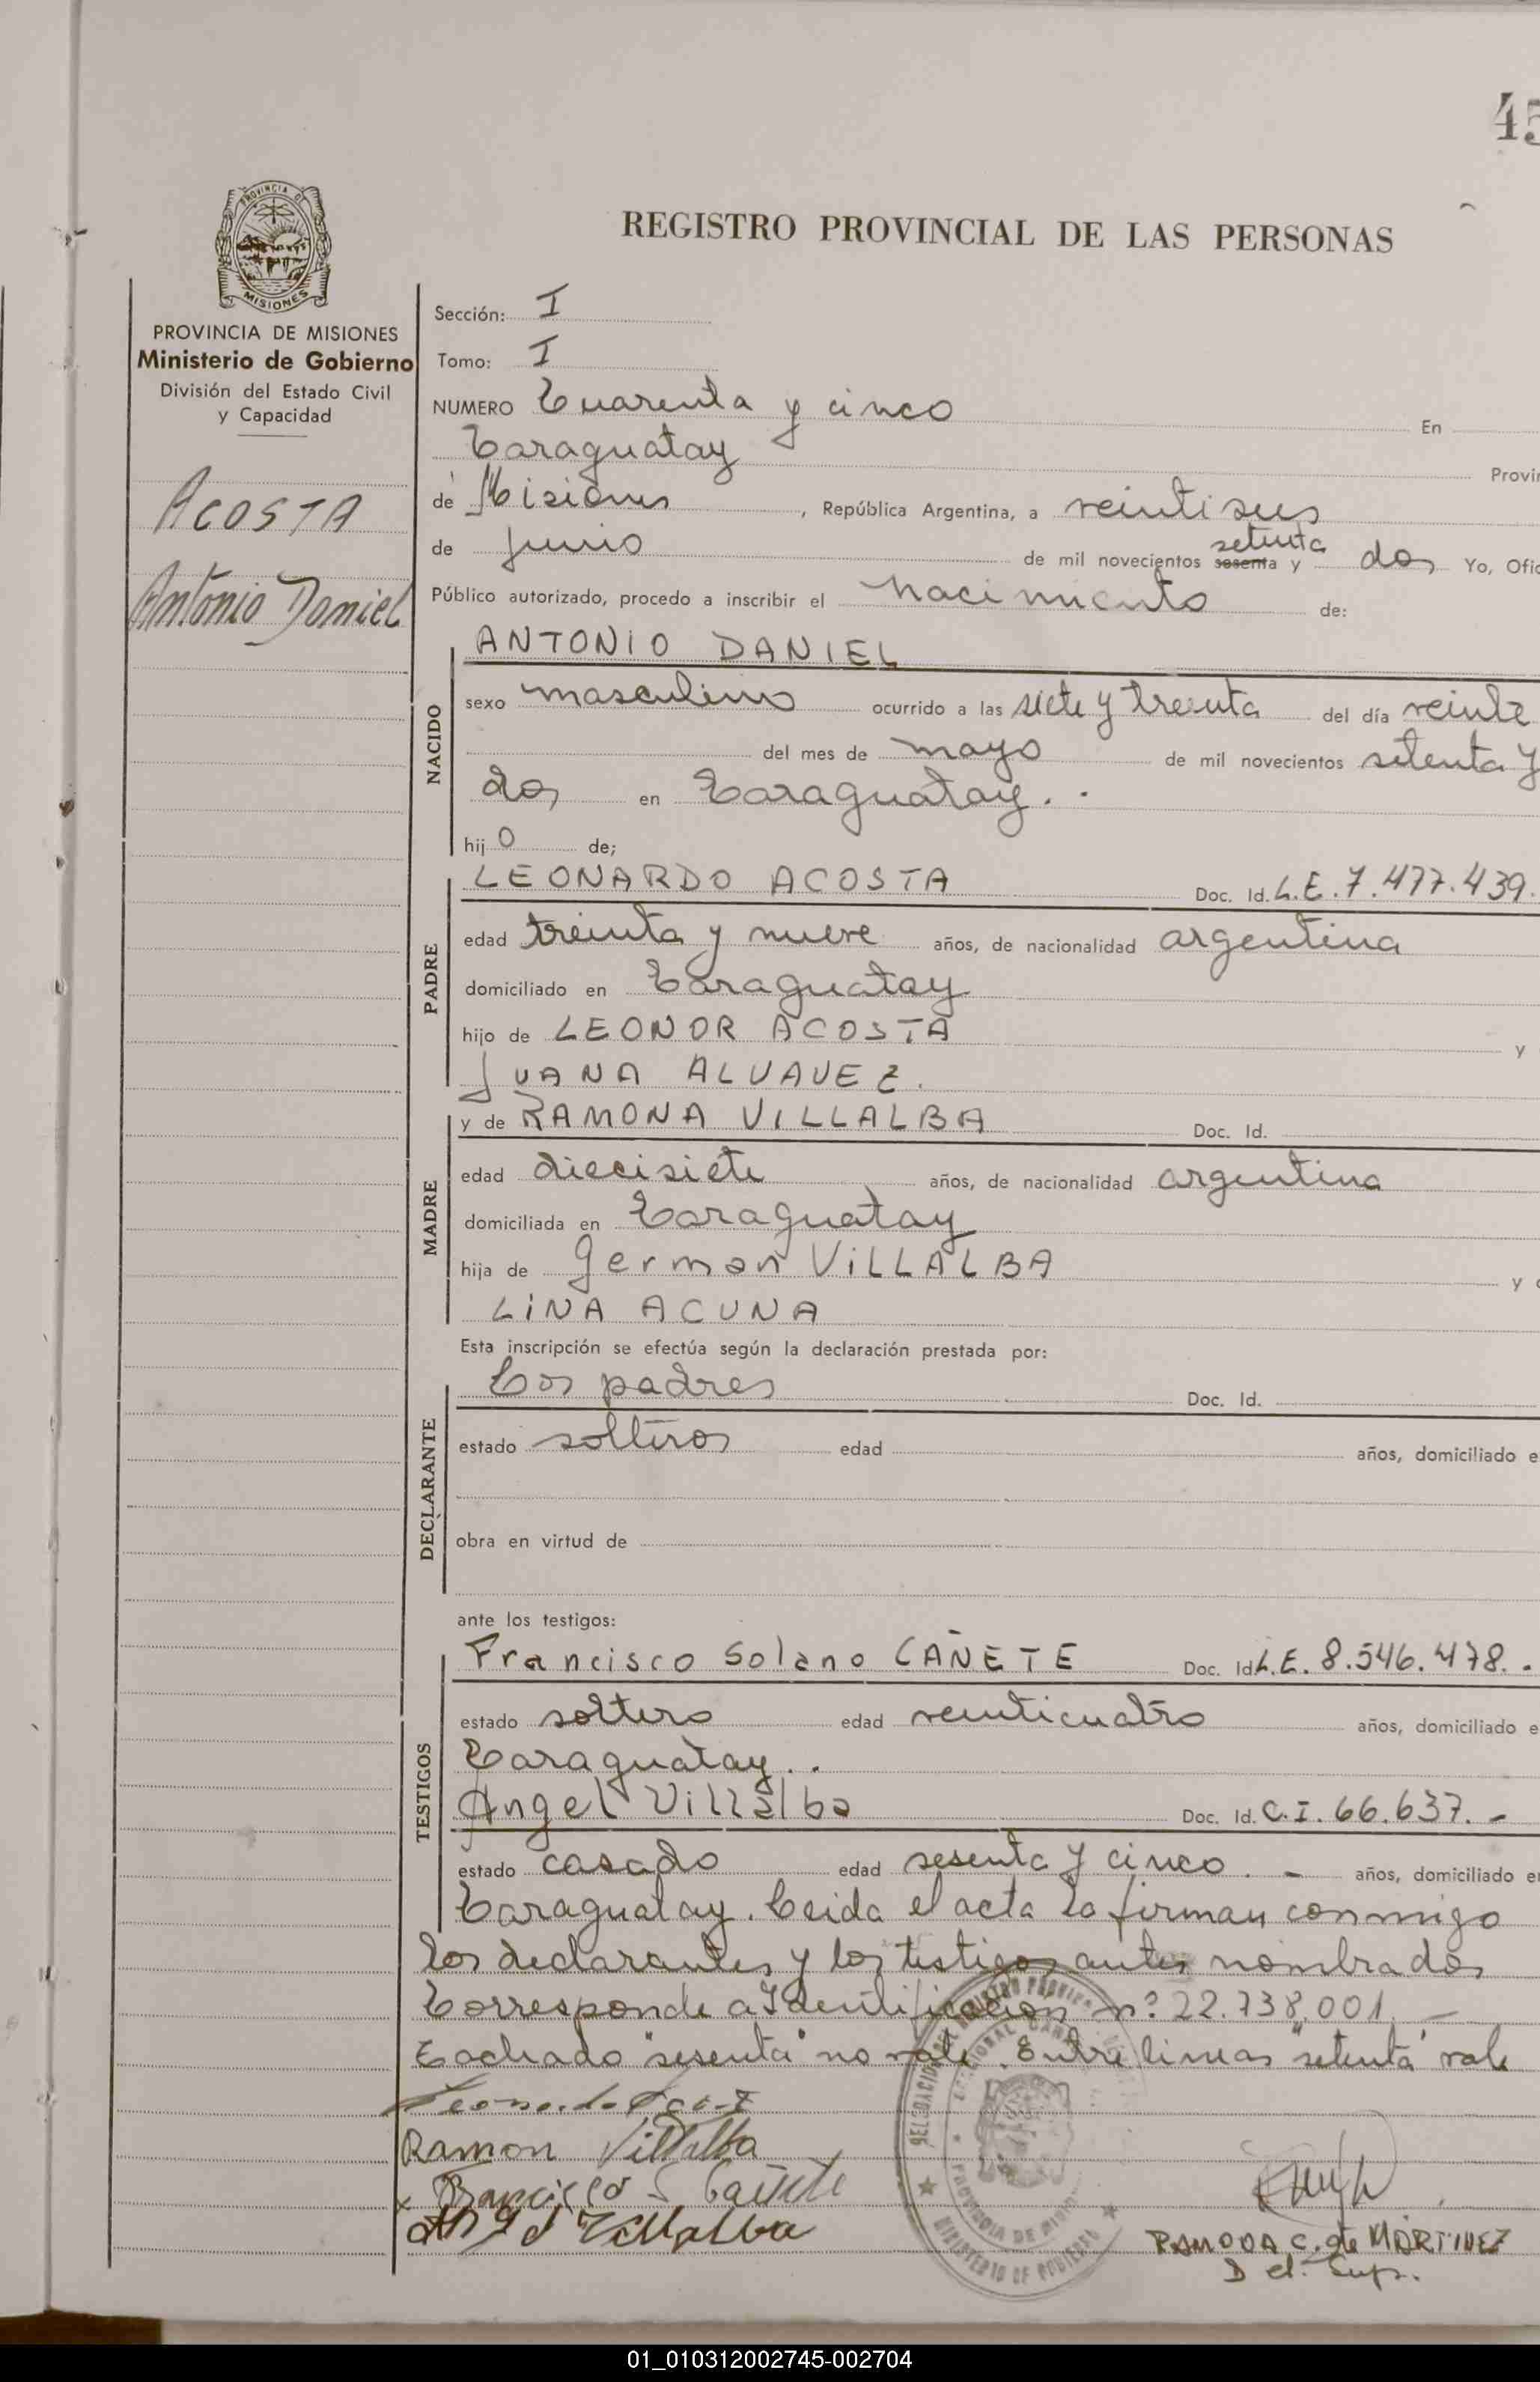 45
REGISTRO PROVINCIAL DE LAS PERSONAS
PROVINCIA DE MISIONES
Ministerio de Gobierno
División del Estado Civil
y Capacidad
ACOSTA
Antonio Daniel
Sección: I
Tomo: I
NUMERO Cuarenta y cinco En
Caraguatay Provin
de Misiones, República Argentina, a veintiseis
setenta
de Junio de mil novecientos sesenta y dos Yo, Ofic
Público autorizado, procedo a inscribir el nacimiento de:
NACIDO
ANTONIO DANIEL
sexo masculino ocurrido a las siete y treinta del día veinte
del mes de mayo de mil novecientos setenta y
dos en Caraguatay. .
hij o de;
PADRE
LEONARDO ACOSTA Doc. Id. L.E. 7.477.439.
edad treinta y nueve años, de nacionalidad argentina
domiciliado en Caraguatay
hijo de LEONOR ACOSTA y
JUANA ALVAVEZ.
MADRE
y de RAMONA VILLALBA Doc. Id.
edad diecisiete años, de nacionalidad argentina
domiciliada en Caraguatay
hija de German VILLALBA y
LINA ACUNA
Esta inscripción se efectúa según la declaración prestada por:
DECLARANTE
Los padres Doc. Id.
estado solteros edad años, domiciliado e
obra en virtud de
ante los testigos:
TESTIGOS
Francisco Solano CAÑETE Doc. Id. L.E. 8.546.478. .
estado soltero edad veinticuatro años, domiciliado e
Caraguatay. .
Angel Villalba Doc. Id. C.I. 66.637. -
estado casado edad sesenta y cinco. - años, domiciliado en
Caraguatay. Leida el acta la firman conmigo
los declarantes y los testigos antes nombrados
Corresponde a Identificación nº. 22.738.001. -
Tachado "sesenta" no vale. Entre lineas "setenta" vale
Ramon Villalba
x Francisco S Cañete
Angel Villalba
RAMONA C. de MARTINEZ
Del. Sup.
MINISTERIO DE GOBIERNO
01_010312002745-002704